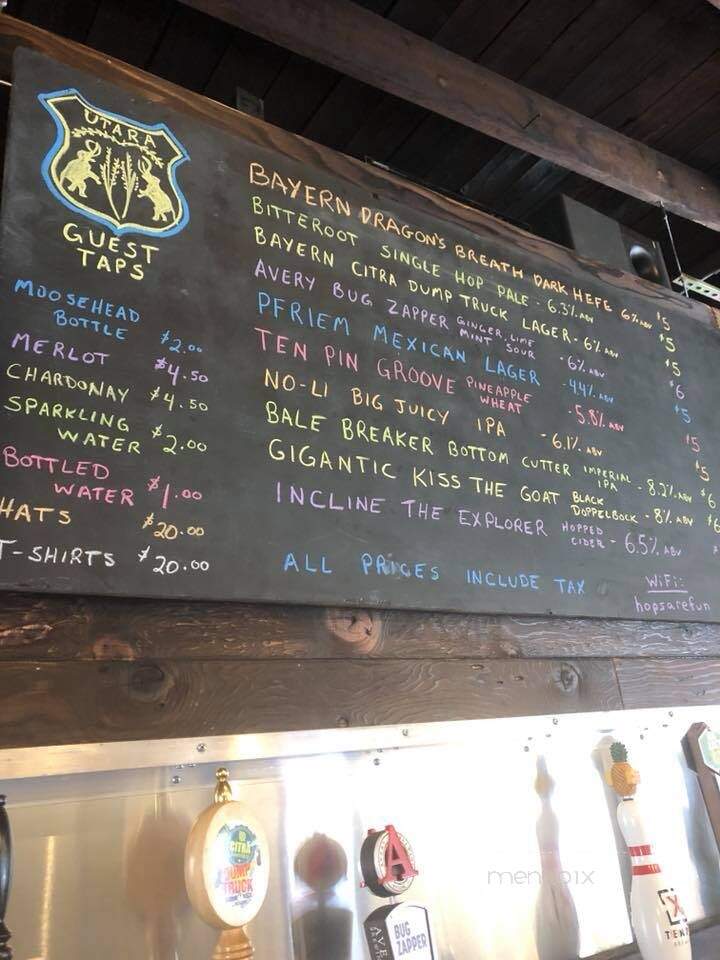 UTARA
GUEST
TAPS
MOOSEHEAD
BOTTLE $2.00
MERLOT $4.50
CHARDONAY $4.50
SPARKLING
WATER $2.00
BOTTLED
WATER $1.00
HATS $20.00
T-SHIRTS $20.00
BAYERN DRAGON'S BREATH DARK HEFE 6% ABV $5
BITTEROOT SINGLE HOP PALE - 6.3% ABV $5
BAYERN CITRA DUMP TRUCK LAGER - 6% ABV $5
AVERY BUG ZAPPER GINGER, LIME
MINT SOUR - 6% ABV $6
PFRIEM MEXICAN LAGER - 4.4% ABV $5
TEN PIN GROOVE PINEAPPLE
WHEAT - 5.8% ABV $5
NO-LI BIG JUICY IPA - 6.1% ABV $5
BALE BREAKER BOTTOM CUTTER IMPERIAL
IPA - 8.2% ABV $6
GIGANTIC KISS THE GOAT BLACK
DOPPELBOCK - 8% ABV $6
INCLINE THE EXPLORER HOPPED
CIDER - 6.5% ABV
ALL PRICES INCLUDE TAX
WiFi:
hopsarefun
CITRA
DUMP
TRUCK
A
AVERY
BUG
ZAPPER
menupix